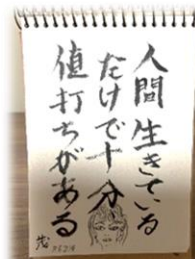 人間生きてる
だけで十分
値打ちがある